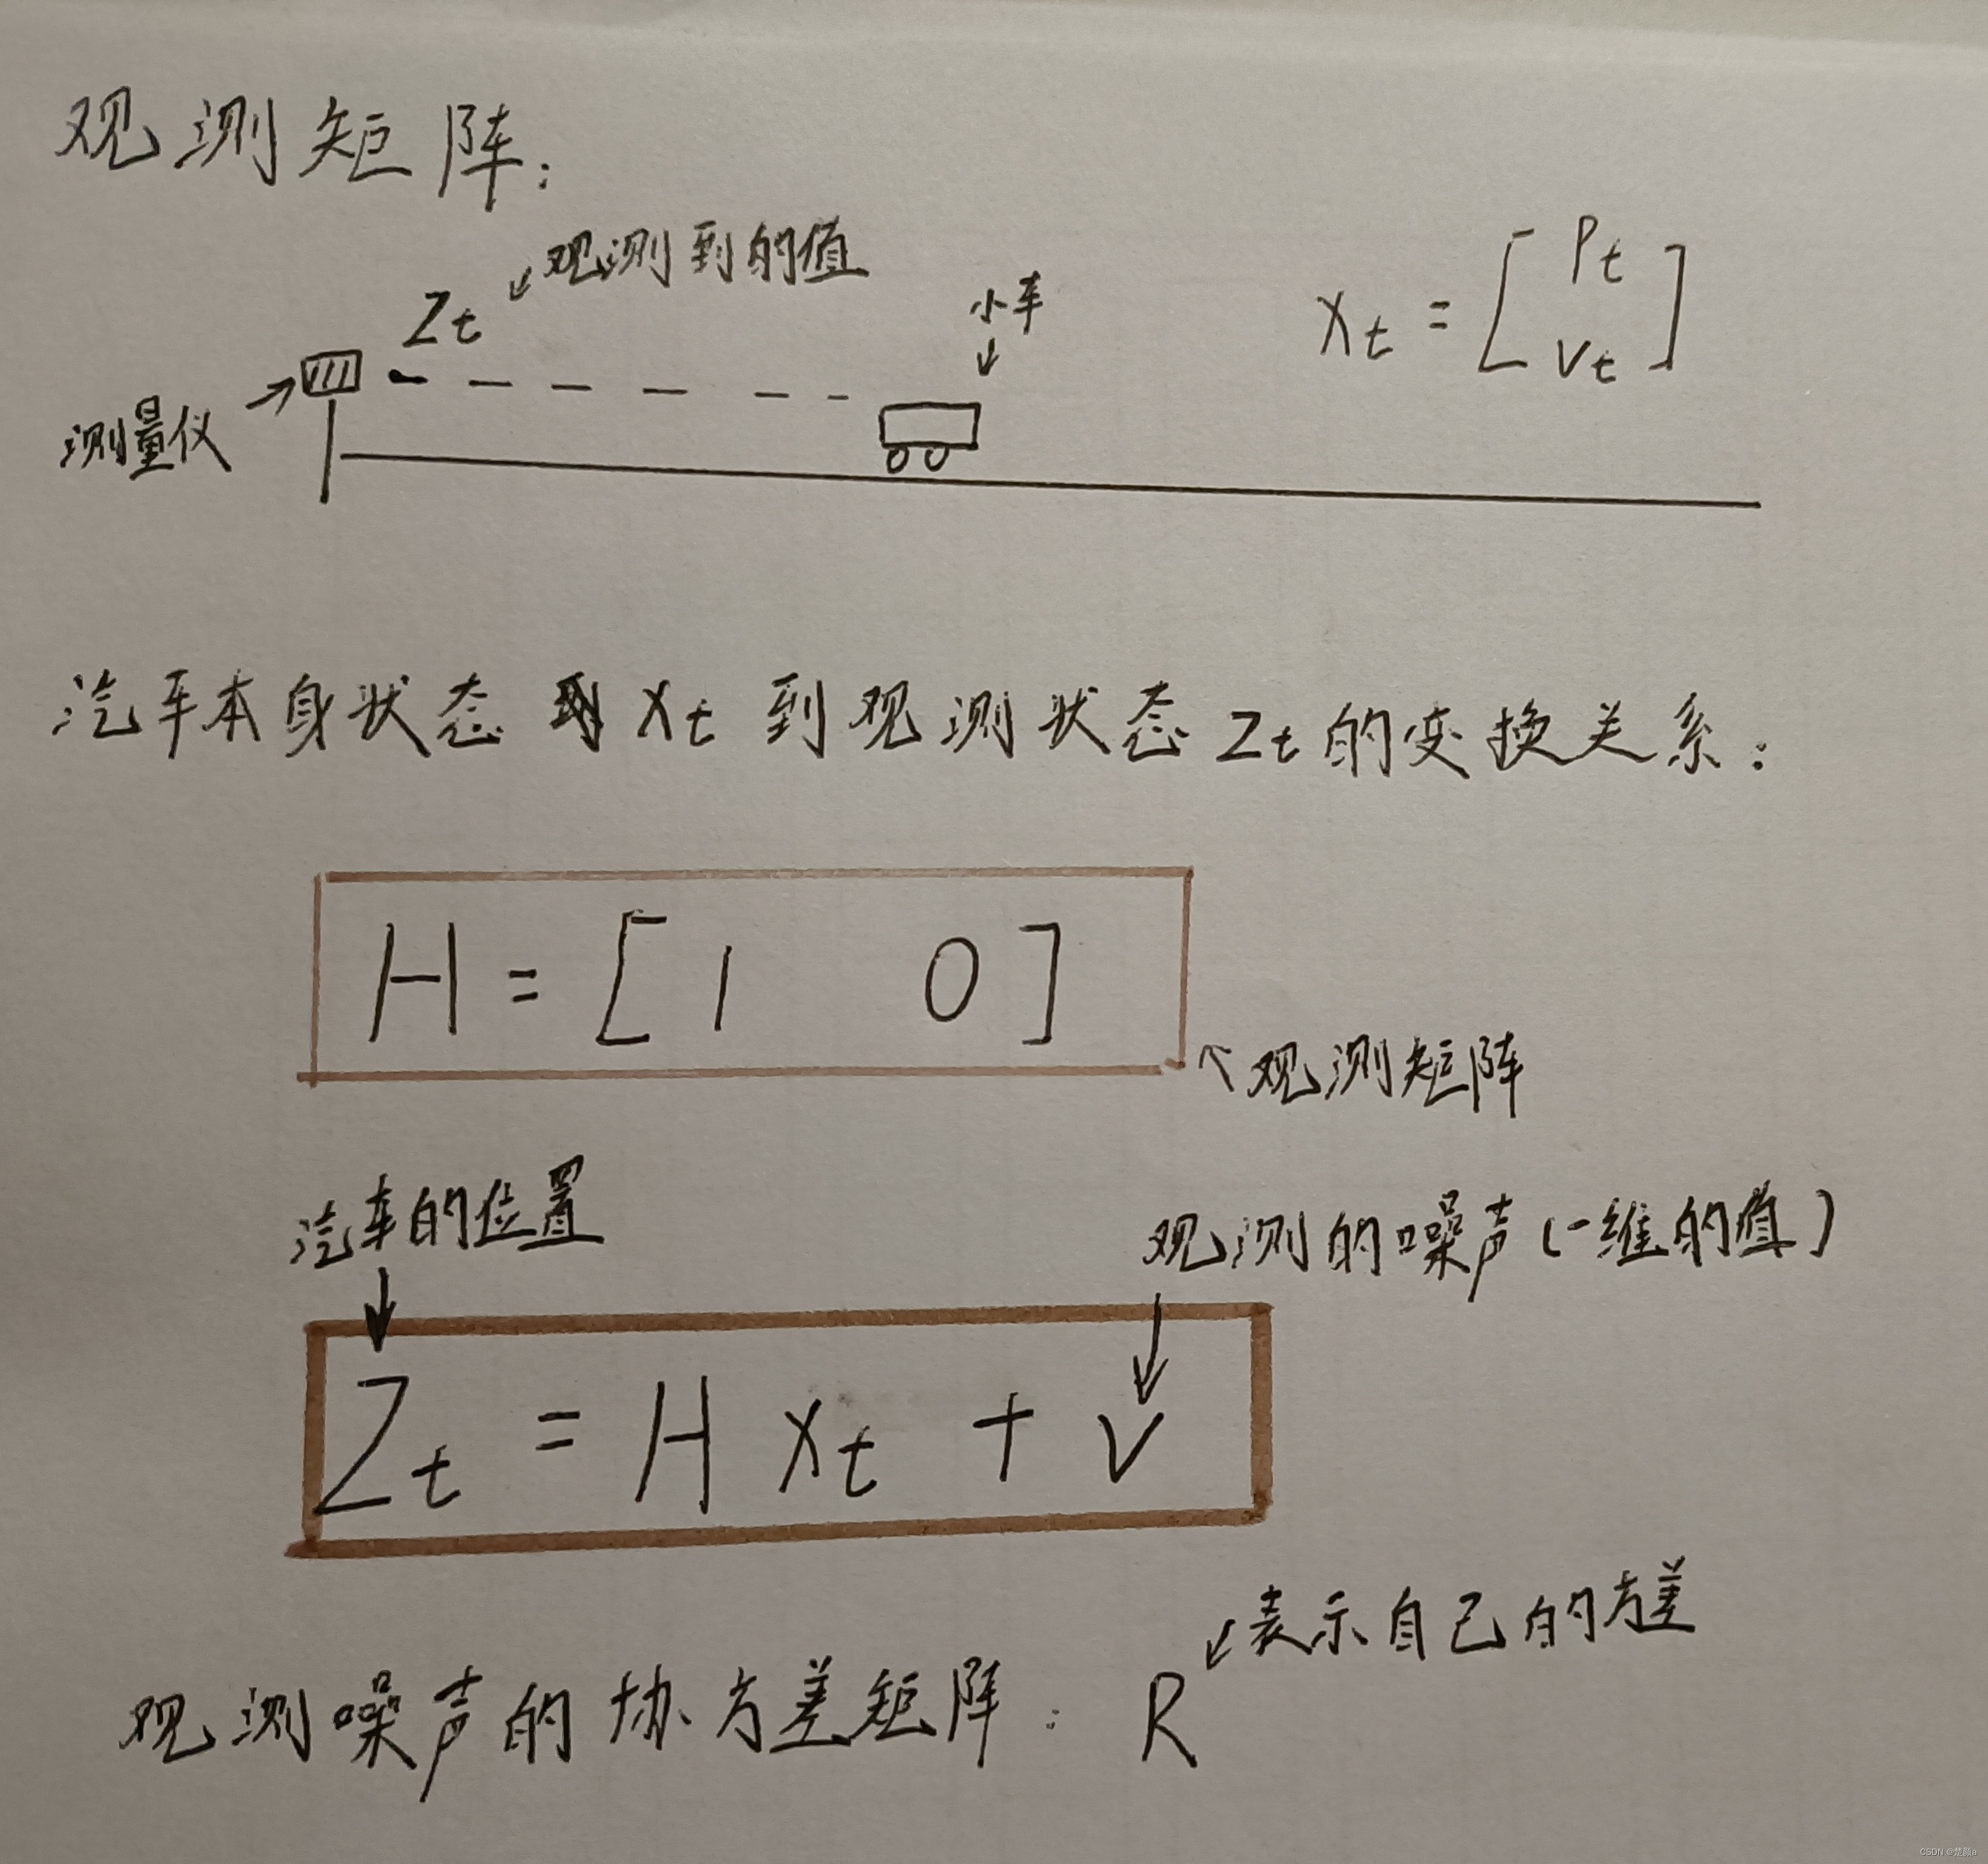 观测矩阵：
观测到的值
Zt
小车
xt = [Pt vt]
测量仪
汽车本身状态 xt 到观测状态 Zt 的变换关系：
H = [1 0]
观测矩阵
汽车的位置
观测的噪声(一维的值)
Zt = H xt + v
表示自己的方差
观测噪声的协方差矩阵：R
CSDN @楚颜a